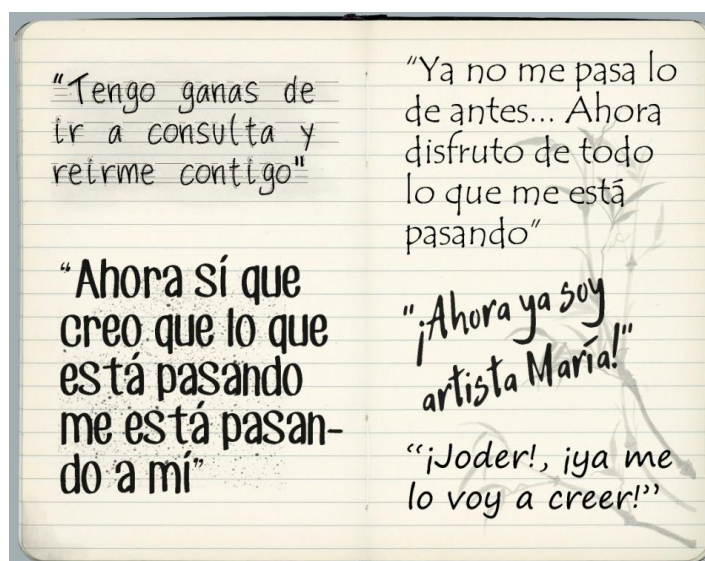 "Tengo ganas de
ir a consulta y
reirme contigo"
"Ahora sí que
creo que lo que
está pasando
me está pasan-
do a mí"
"Ya no me pasa lo
de antes... Ahora
disfruto de todo
lo que me está
pasando"
"¡Ahora ya soy
artista María!"
"¡Joder!, ¡ya me
lo voy a creer!"